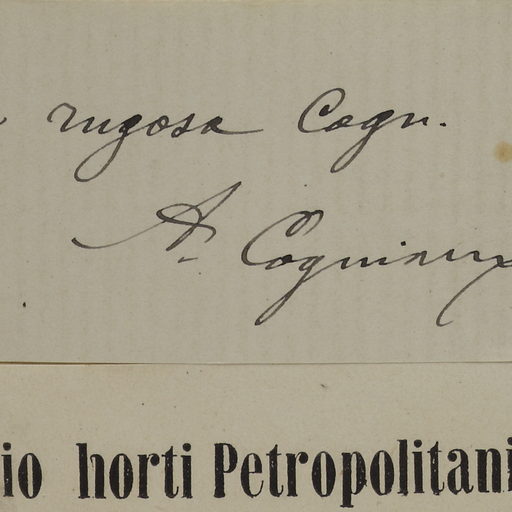 rugosa Cogn.
A. Cogniaux
io horti Petropolitani